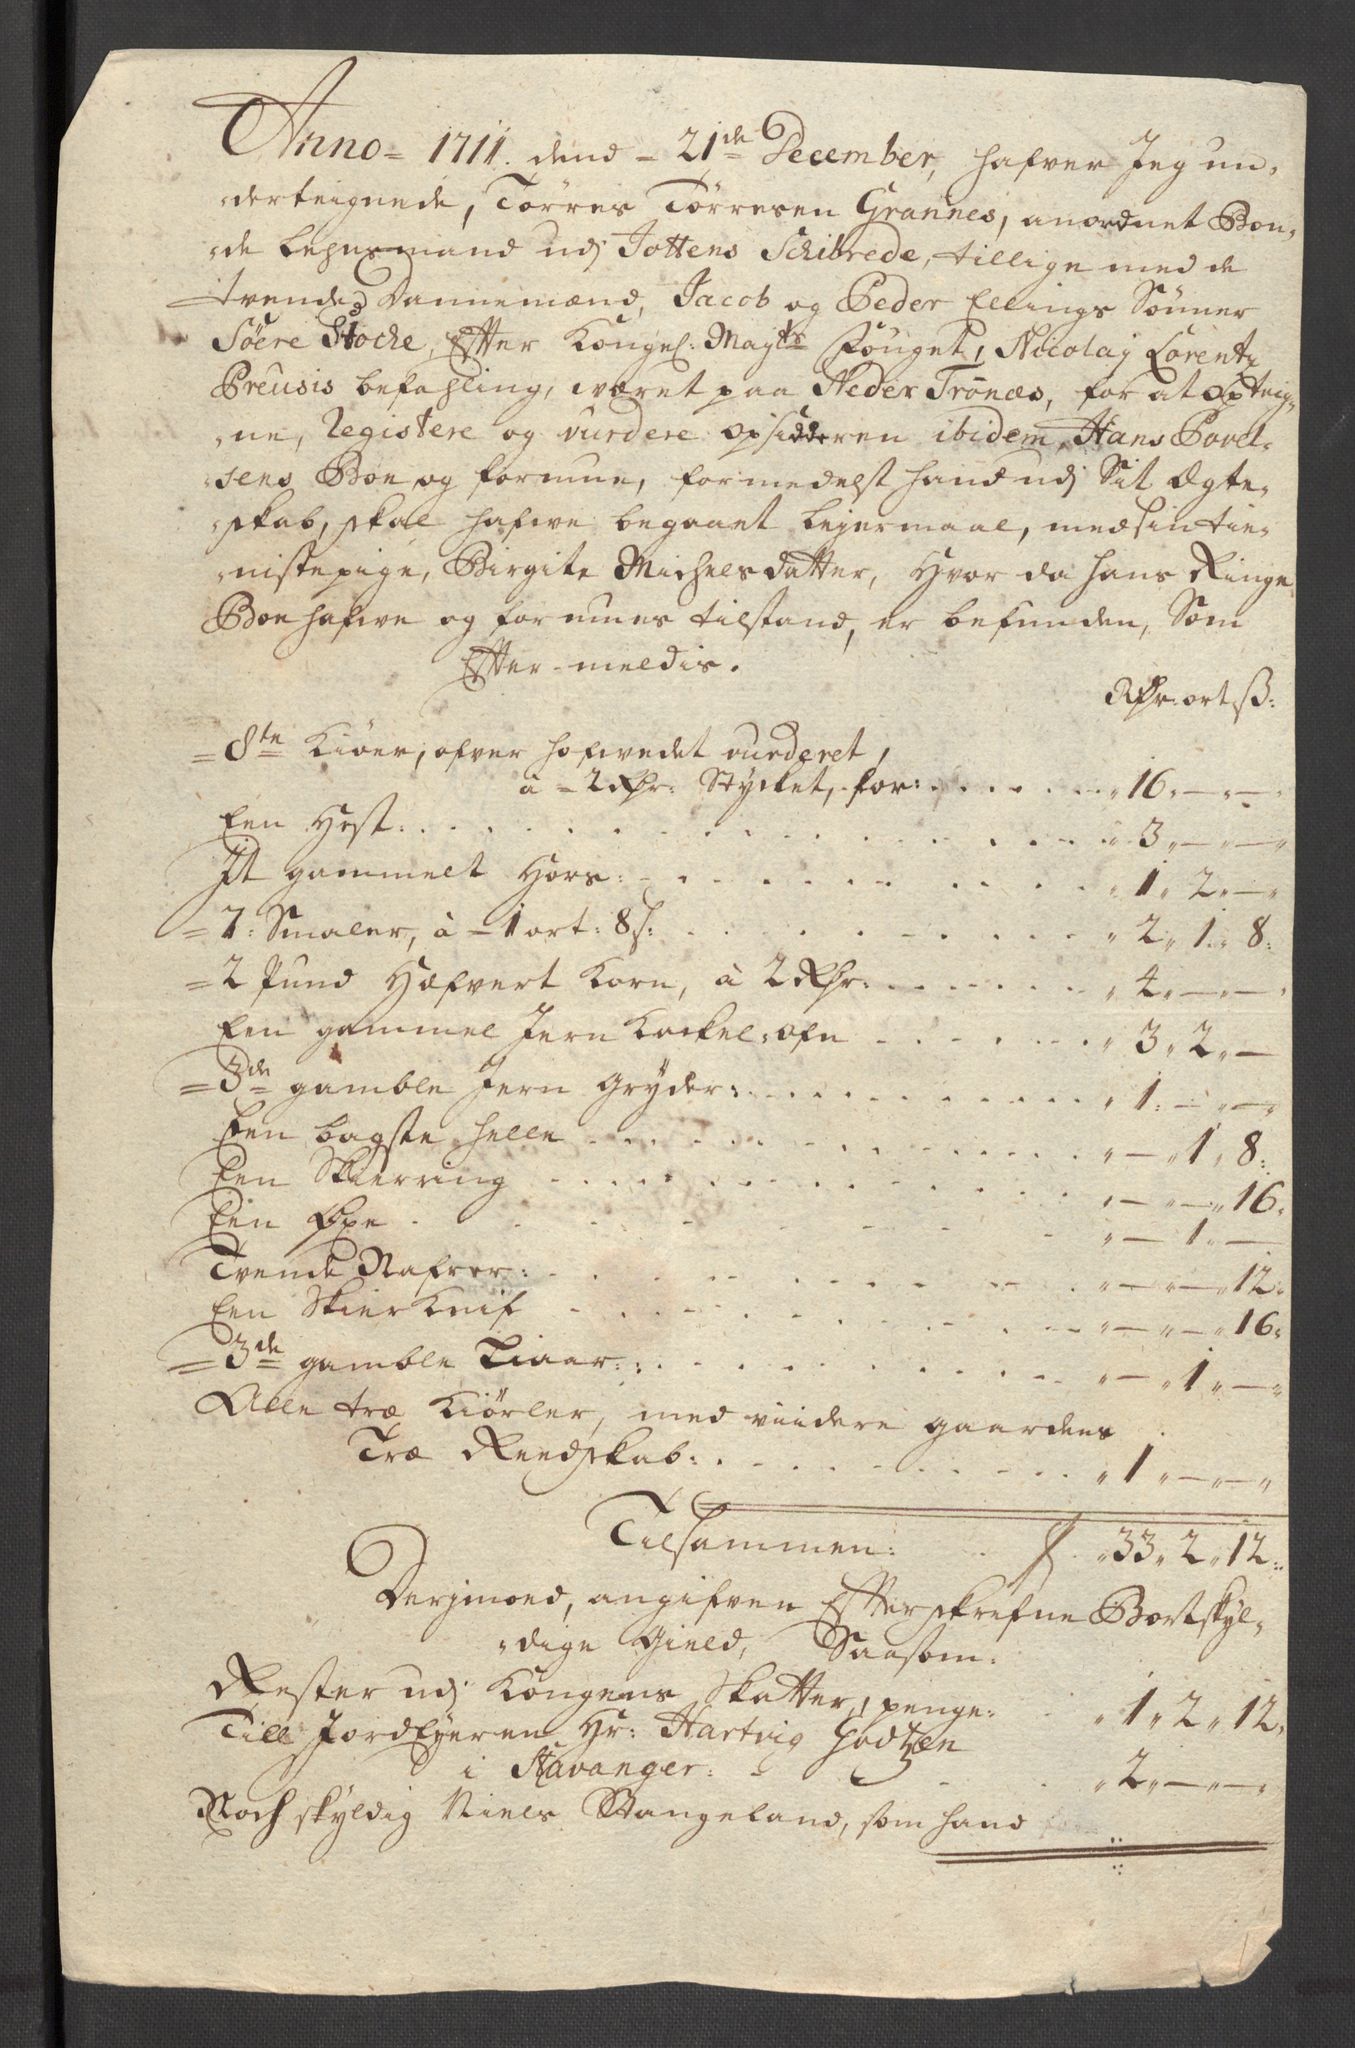 Anno = 1711. dend = 21de December, hafver Jeg un-
derteignede, Törres Törresen Grannes, anordnet Bon-
de lehnsmand udj Jottens Schibrede, tillige med de
tvende Dannemænd, Jacob og Peder Ellings Sönner
Söere Stocke, Efter Kongel: Mayts Fouget, Nicolaj Lorentz
Preusis befahling, været paa Neder Trönæs, for at opteig-
ne, Registere og vurdere opsidderen ibidem, Hans Povel-
sens Boe og formue, formedelst hand udj Sit Ægte-
skab, skal hafve begaaet lejermaal, med sin tie-
nistepige, Birgite Michelsdatter, Hvor da hans Ringe
Boe hafve og formues tilstand, er befunden, Som
Efter-meldis.
Rdr: ort ß:
= 8te Kiöer, ofver hofvedet vurderet,
à = 2 Rdr: Stycket, for: 16 „ — „ — „
Een Hest: 3 „ — „ — „
It gammelt Hors: 1 „ 2 „ — „
= 7: Smaler, à = 1 ort: 8 s: 2 „ 1 „ 8:
= 2 Pund Hæfvert Korn, à 2 Rdr: 4 „ — „ — „
Een gammel Jern Kackel-ofn 3 „ 2 „ —
= 3de gamble Jern Gryder: 1: — „ — „
Een bagste helle „ — „ 1 „ 8:
Een Skierring „ — „ — „ 16:
Een Öxe „ — 1: —
Tvende Nafrer: „ — „ — „ 12:
Een Skier Knif „ — „ — „ 16:
= 3de gamble Liaar: „ — „ 1 „ — „
Alle træ Kiörler, med viidere gaardens
Træ Reedskab: „ 1 „ — „ — „
Tilsammen: „ 33 „ 2 „ 12:
Derjmoed, angifven Efterskrefne Bortskyl-
dige Gield, Saasom:
Rester udj Kongens Skatter, penge: „ 1 „ 2 „ 12:
Till Jordejeren Hr: Hartvig Godtzen
i Stavanger: „ 2 „ — „ — „
Noch skyldig Niels Stangeland, som hand